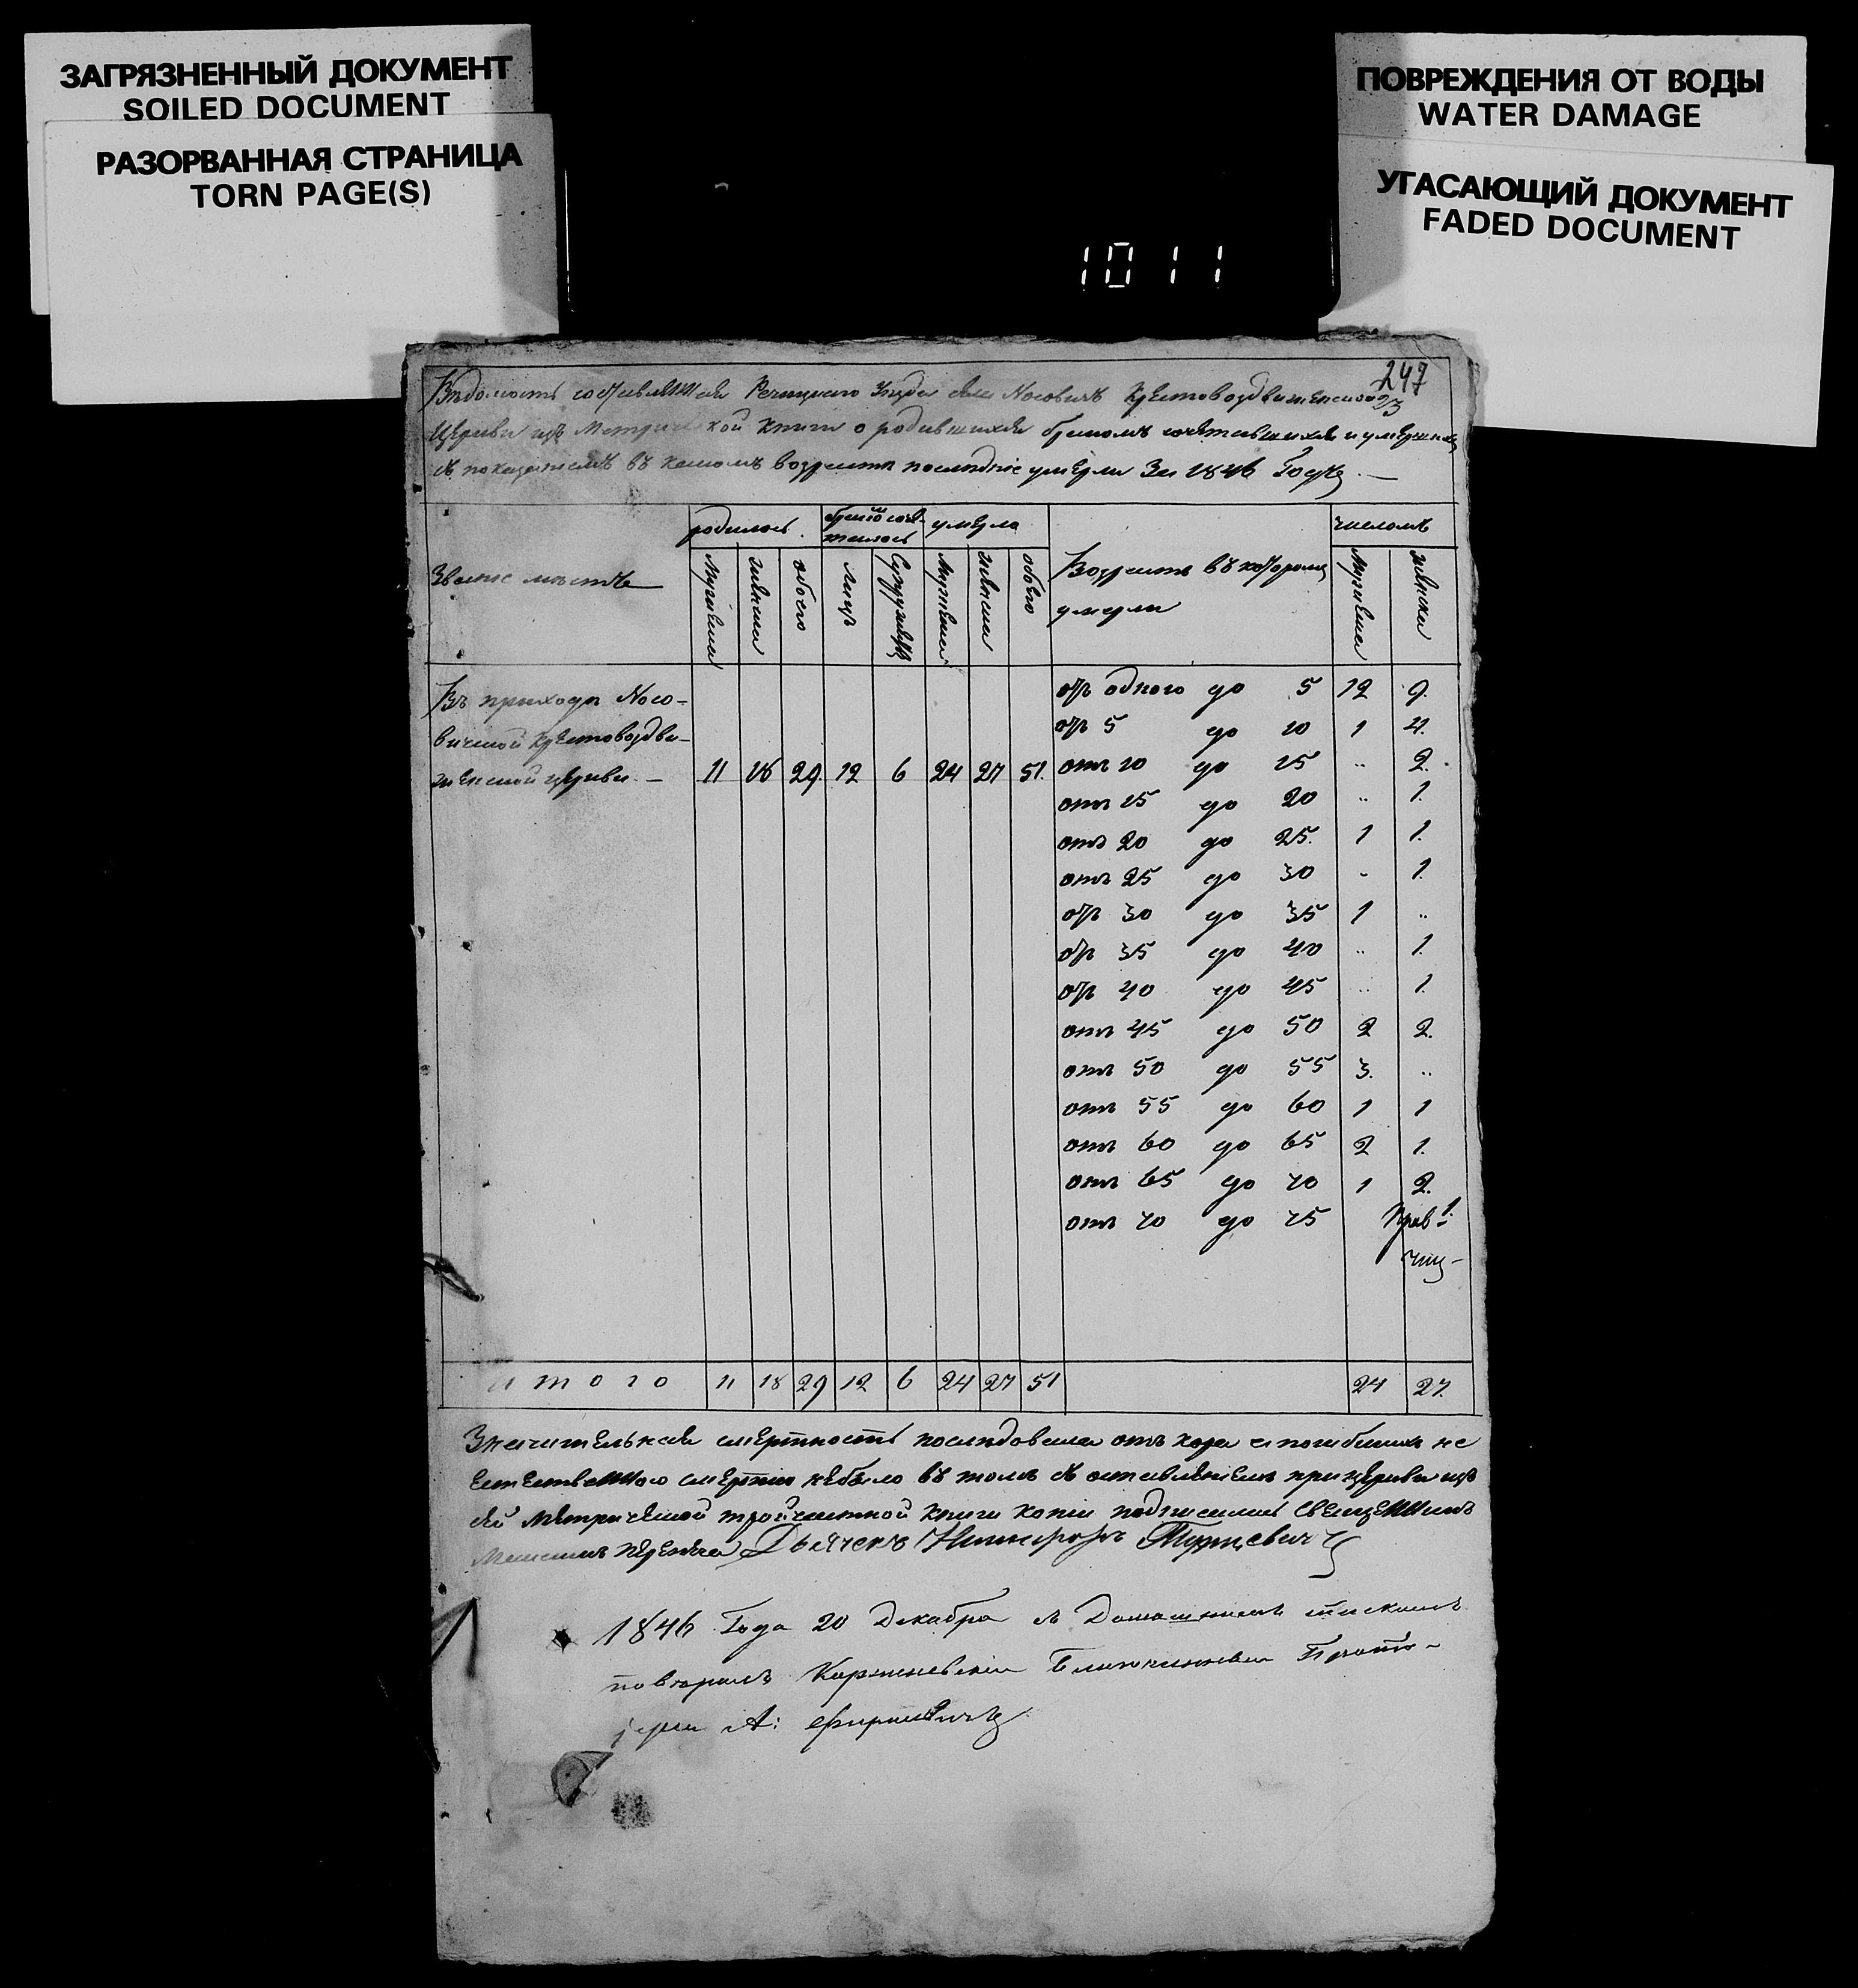 ЗАГРЯЗНЕННЫЙ ДОКУМЕНТ
SOILED DOCUMENT
РАЗОРВАННАЯ СТРАНИЦА
TORN PAGE(S)
ПОВРЕЖДЕНИЯ ОТ ВОДЫ
WATER DAMAGE
УГАСАЮЩИЙ ДОКУМЕНТ
FADED DOCUMENT
1011
247
Вѣдомость составленная Речицкаго Уѣзда села Носовичъ Крестовоздвиженской
Церкви изъ Метрической книги о родившихся бракомъ сочетавшихся и умершихъ
съ показаніемъ въ какомъ возрастѣ послѣдніе умерли За 1846 Годъ
родилось бракосоче- умерло числомъ
талось
Званіе мѣстъ мужеска женска обоего лицъ Супружествъ мужеска женска обоего Возрастъ въ которомъ мужеска женска
умерли
Въ приходѣ Носо- отъ одного до 5 12 9.
вичской Крестовоздви- отъ 5 до 10 1 4.
женской церкви 11 18 29. 12 6 24 27 51. отъ 10 до 15 " 2.
отъ 15 до 20 " 1.
отъ 20 до 25. 1 1.
отъ 25 до 30 " 1.
отъ 30 до 35 1 "
отъ 35 до 40 " 1.
отъ 40 до 45 " 1.
отъ 45 до 50 2 2.
отъ 50 до 55 3. "
отъ 55 до 60 1 1
отъ 60 до 65 2 1.
отъ 65 до 70 1 2.
отъ 70 до 75 1.
итого 11 18 29 12 6 24 27 51 24 27.
Значительная смертность послѣдовала отъ кора а погибшихъ не
естественною смертію небыло въ томъ съ оставленіемъ при церкви изъ
сей Метрической тройчастной книги копіи подписались Священникъ
Дьячекъ Никифоръ Турцевичъ
1846 Года 20 Декабра съ
повѣрялъ Благочинный Прото-
іерей А: